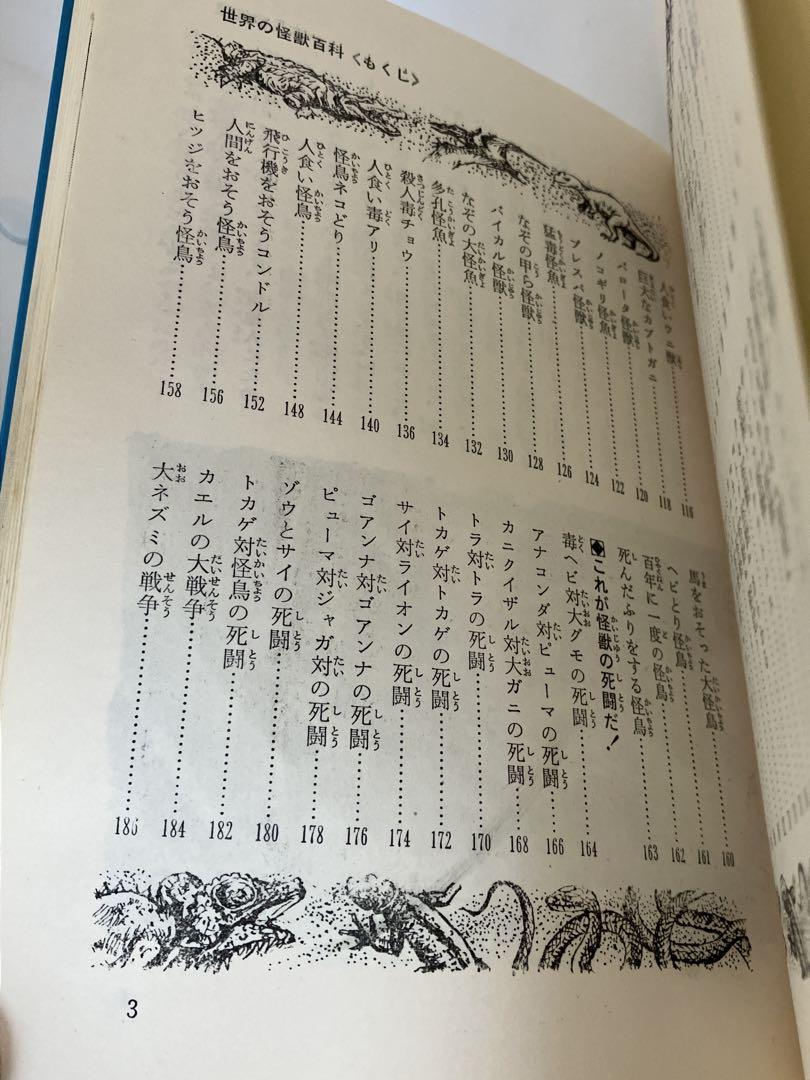 世界の怪獣百科〈もくじ〉
人食いウニ獣……116
巨大なカブトガニ……118
バロータ怪獣……120
ノコギリ怪魚……122
プレスバ怪獣……124
猛毒怪魚……126
なぞの甲ら怪獣……128
バイカル怪獣……130
なぞの大怪魚……132
多孔怪魚……134
殺人毒チョウ……136
人食い毒アリ……140
怪鳥ネコどり……144
人食い怪鳥……148
飛行機をおそうコンドル……152
人間をおそう怪鳥……156
ヒツジをおそう怪鳥……158
馬をおそった大怪鳥……160
ヘビとり怪鳥……161
百年に一度の怪鳥……162
死んだふりをする怪鳥……163
◆これが怪獣の死闘だ!
毒ヘビ対大グモの死闘……164
アナコンダ対ピューマの死闘……166
カニクイザル対大ガニの死闘……168
トラ対トラの死闘……170
トカゲ対トカゲの死闘……172
サイ対ライオンの死闘……174
ゴアンナ対ゴアンナの死闘……176
ピューマ対ジャガ対の死闘……178
ゾウとサイの死闘……180
トカゲ対怪鳥の死闘……182
カエルの大戦争……184
大ネズミの戦争……186
3